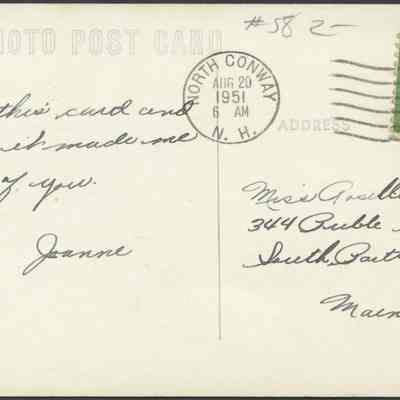 #58 2-
PHOTO POST CARD
NORTH CONWAY
AUG 20
1951
6 AM
N. H.
ADDRESS
this card and
it made me
of you.
Joanne
Miss
344
South Port
Main